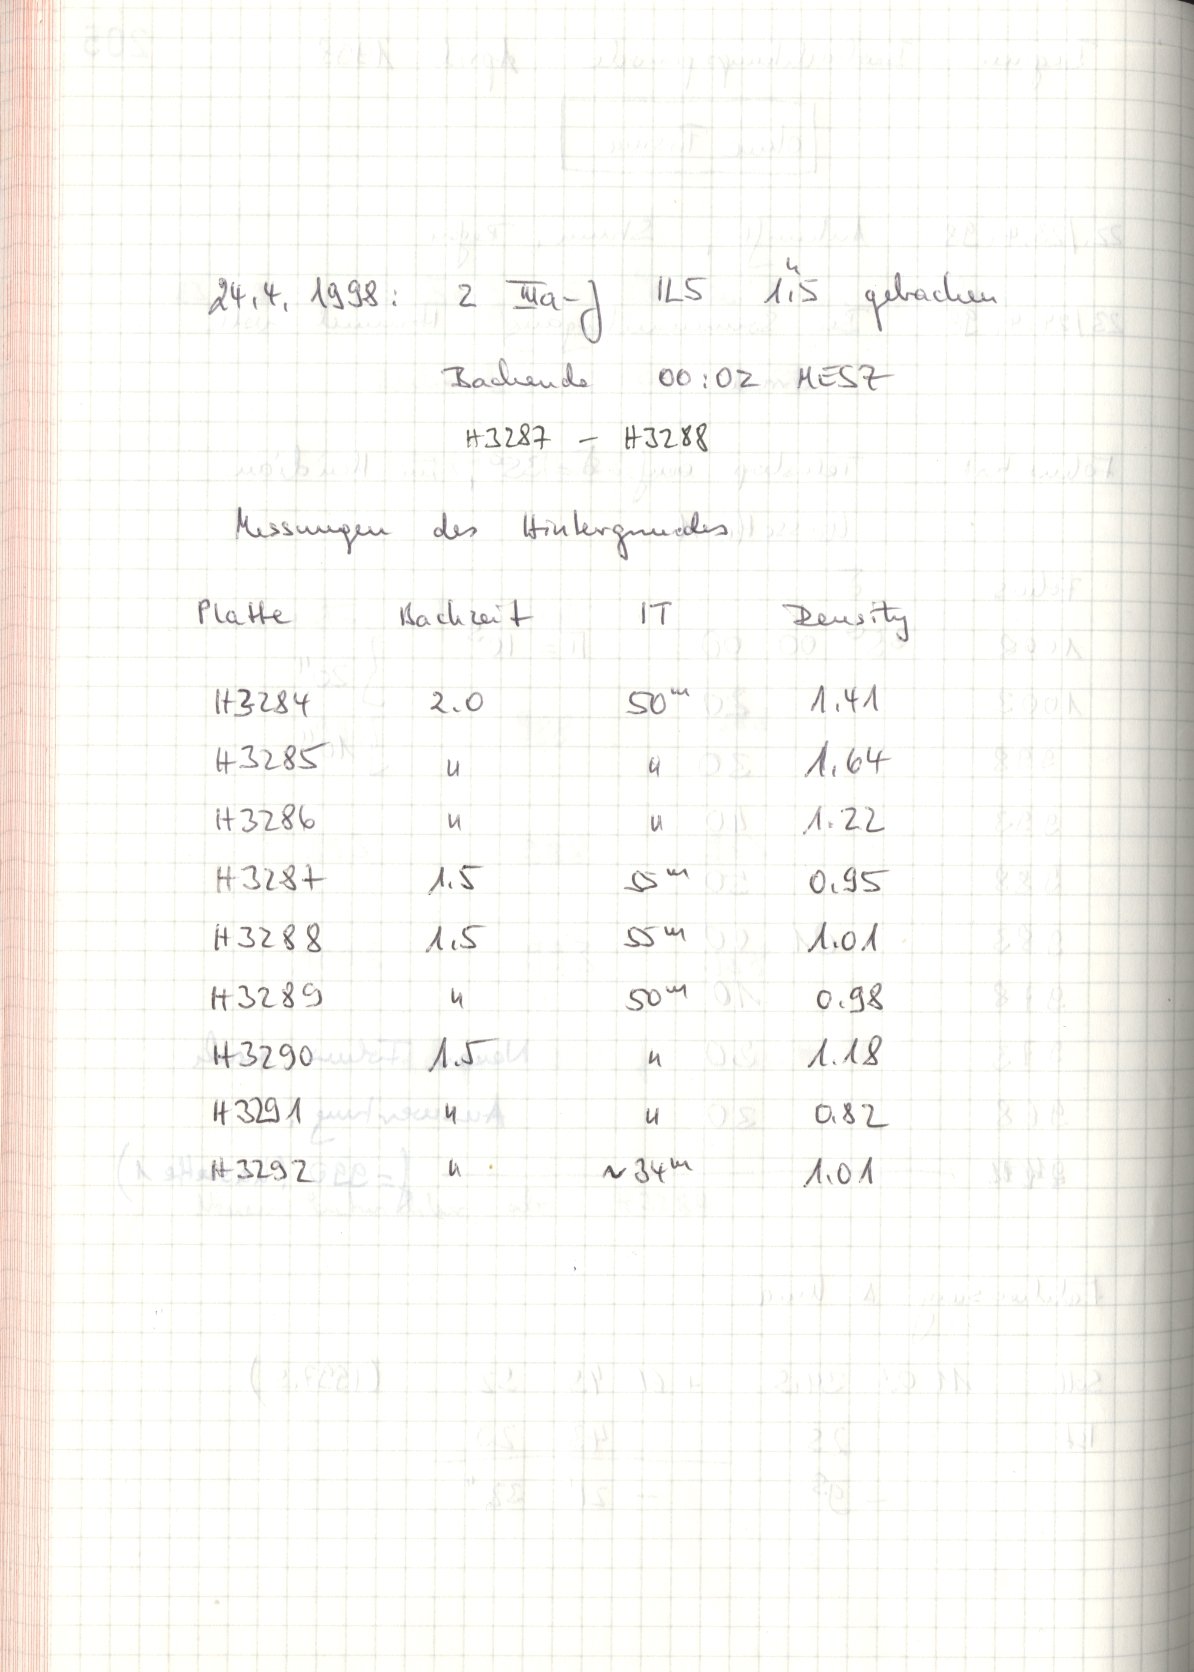 24.4. 1998: 2 IIIa-J IL5 1.ʰ5 gebacken
Backende 00:02 MESZ
H3287 – H3288
Messungen des Hintergrundes
Platte Backzeit IT Density
H3284 2.0 50ᵐ 1.41
H3285 " " 1.64
H3286 " " 1.22
H3287 1.5 55ᵐ 0.95
H3288 1.5 55ᵐ 1.01
H3289 " 50ᵐ 0.98
H3290 1.5 " 1.18
H3291 " " 0.82
H3292 " ~34ᵐ 1.01